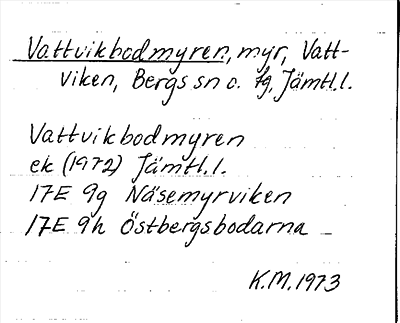 Vattvikbodmyren, myr, Vatt-
viken, Bergs sn o. tg, Jämtl.l.
Vattvikbodmyren
ek (1972) Jämtl.l.
17E 9g Näsemyrviken
17E 9h Östbergsbodarna
K.M.1973